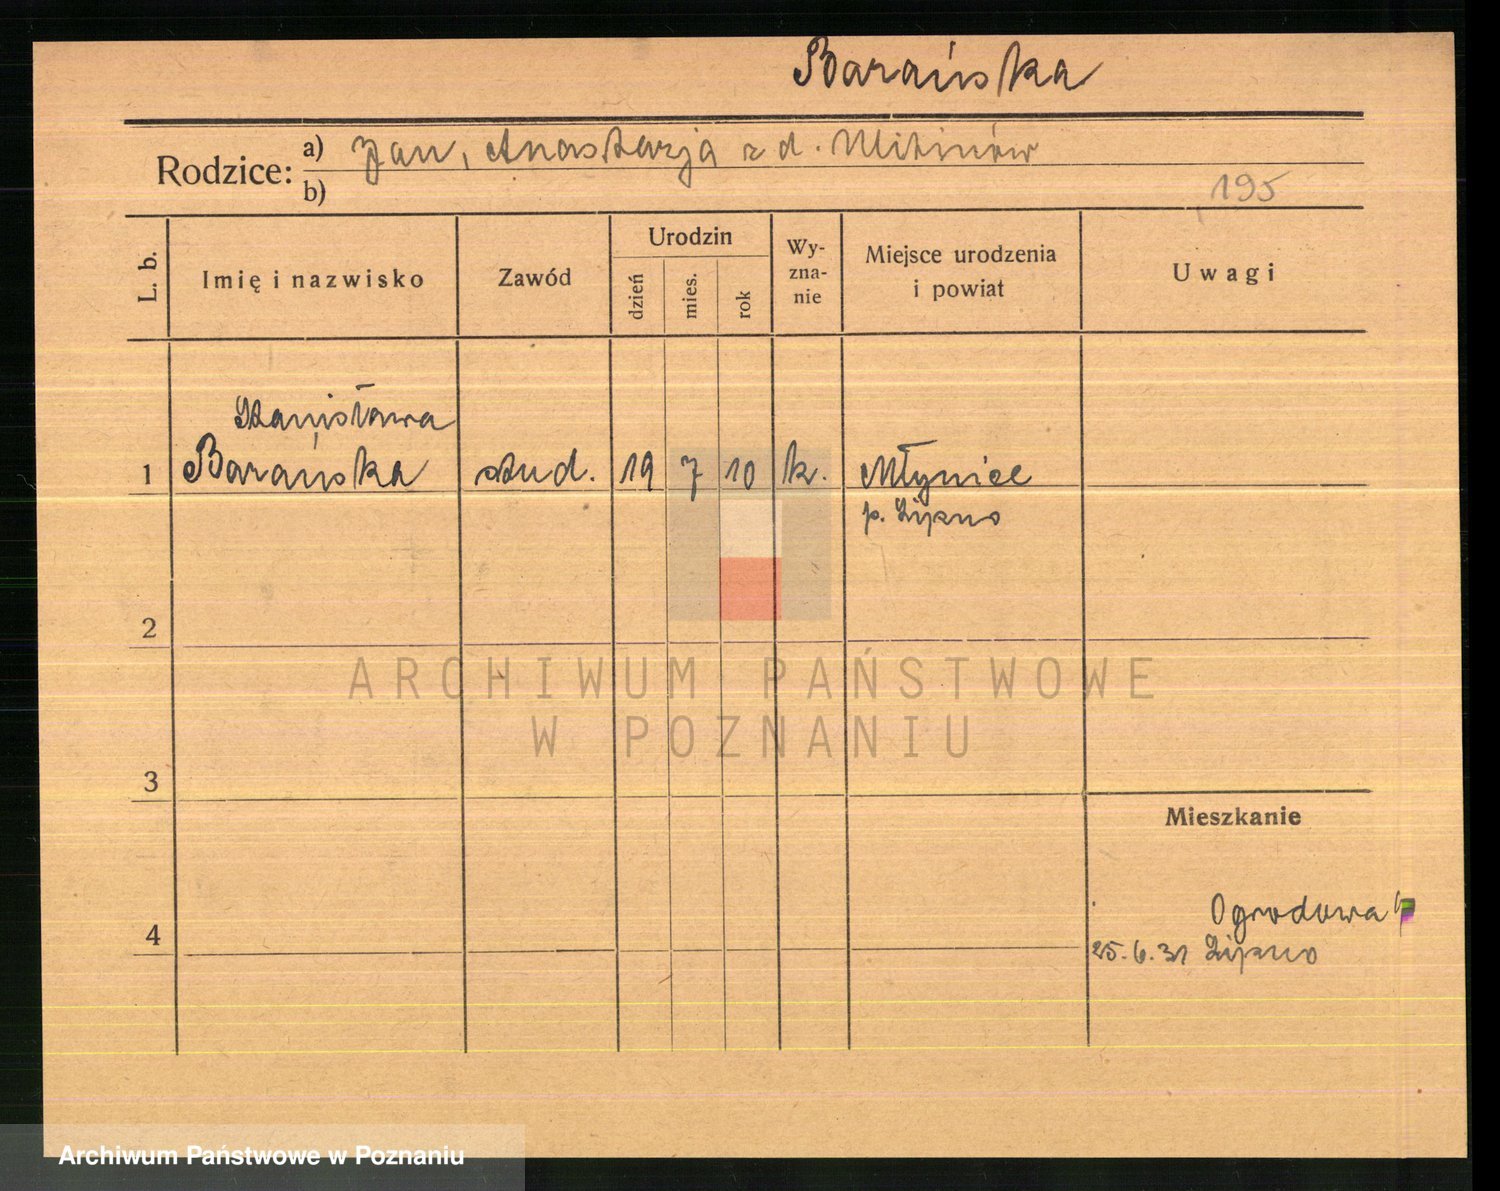 Barańska
Rodzice: a) Jan, Anastazja z d. Mitinów
b)
195
L. b.
Imię i nazwisko
Zawód
Urodzin
dzień
mies.
rok
Wy-
zna-
nie
Miejsce urodzenia
i powiat
Uwagi
Stanisława
1 Barańska stud. 19 7 10 k. Młyniec
p. Lipno
2
ARCHIWUM PAŃSTWOWE
W POZNANIU
3
Mieszkanie
Ogrodowa
4
25.6.31 Lipno
Archiwum Państwowe w Poznaniu